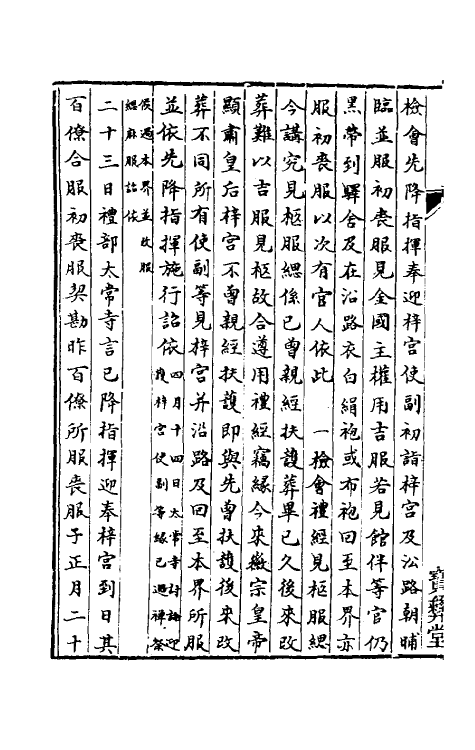 檢會先降指揮奉迎梓宮使副初詣梓宮及㳂路朝晡
臨並服初喪服見金國主權用吉服若見館伴等官仍
黑帶到驛舍及在沿路衣白絹袍或布袍回至本界亦
服初喪服以次有官人依此　一檢會禮經見柩服緦
今講究見柩服緦係已曾親經扶護葬畢已久後來改
葬難以吉服見柩故合遵用禮經竊緣今來徽宗皇帝
顯肅皇后梓宮不曾親經扶護即與先曾扶護後來改
葬不同所有使副等見梓宮并沿路及回至本界所服
並依先降指揮施行詔依四月十四日太常寺討論迎
護梓宮使副等緣已過禫祭
候過本界並改服
緦麻服詔依
二十三日禮部太常寺言已降指揮迎奉梓宮到日其
百僚合服初喪服契勘昨百僚所服喪服于正月二十
寶彞堂